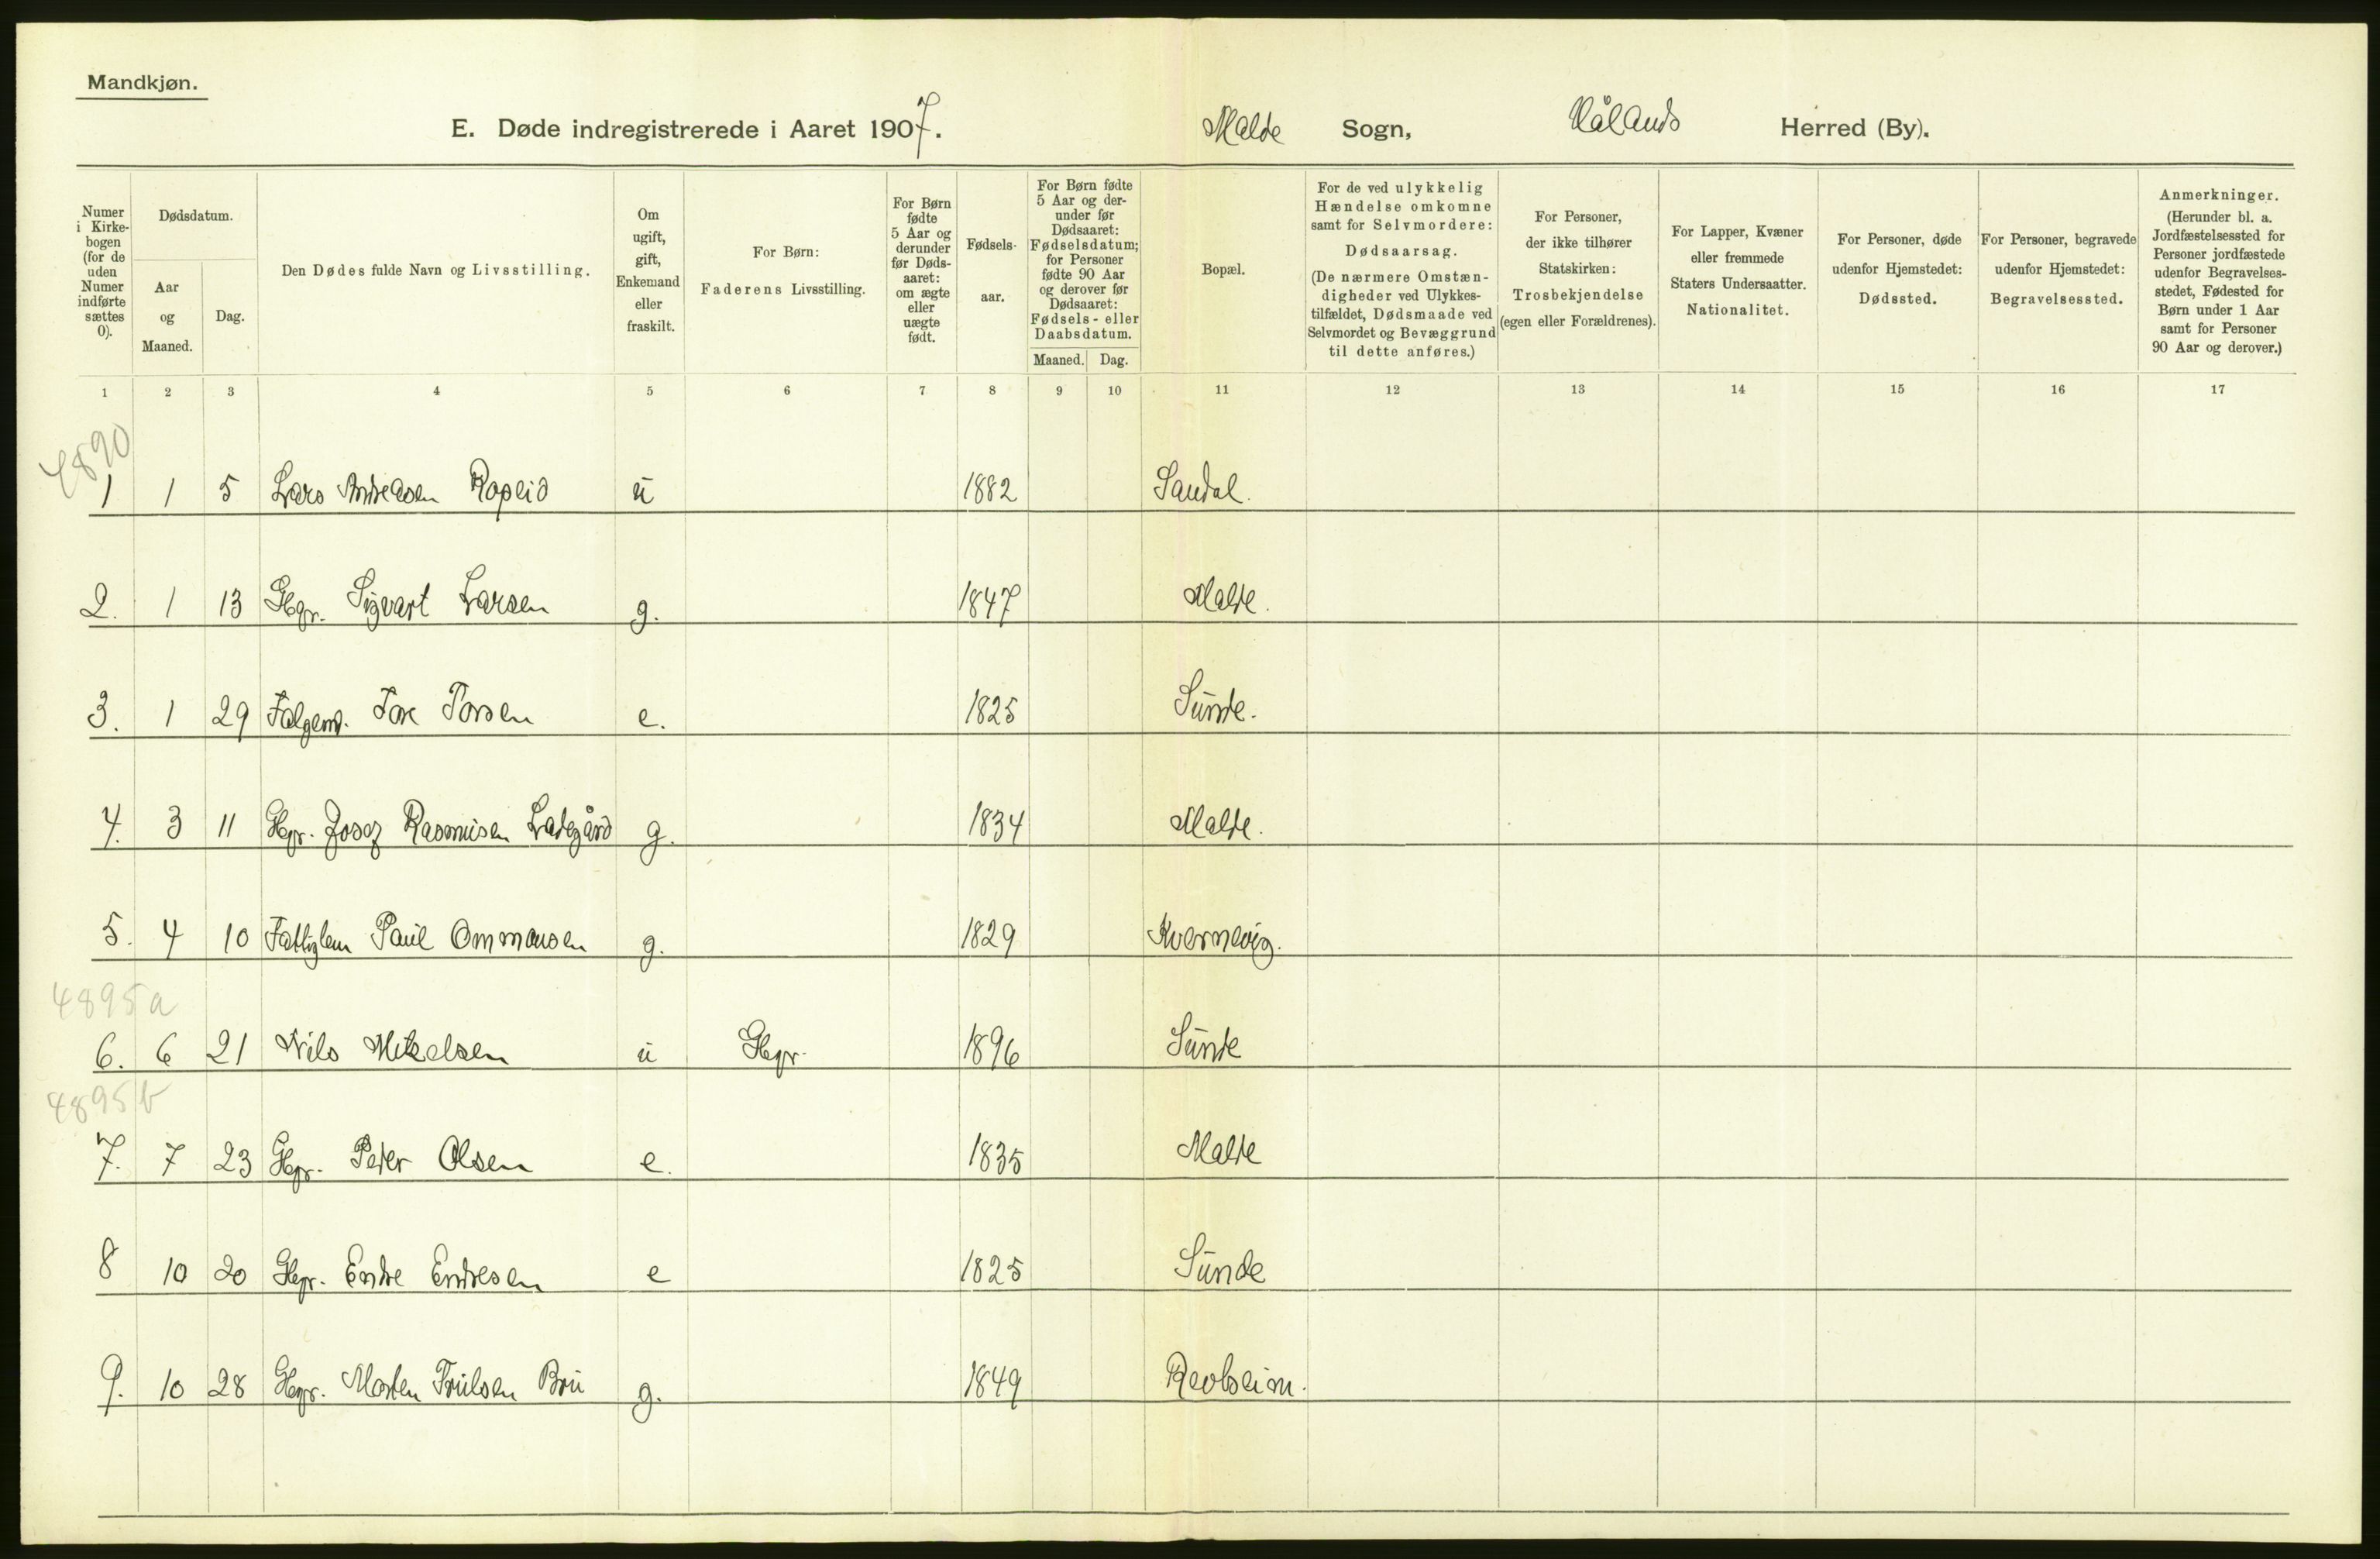 Mandkjøn.
E. Døde indregistrerede i Aaret 1907. Malde Sogn, Hålands Herred (By).
Numer i Kirkebogen (for de uden Numer indførte sættes 0).
Dødsdatum.
Aar og Maaned.
Dag.
Den Dødes fulde Navn og Livsstilling.
Om ugift, gift, Enkemand eller fraskilt.
For Børn: Faderens Livsstilling.
For Børn fødte 5 Aar og derunder før Dødsaaret: om ægte eller uægte født.
Fødselsaar.
For Børn fødte 5 Aar og derunder før Dødsaaret: Fødselsdatum; for Personer fødte 90 Aar og derover før Dødsaaret: Fødsels- eller Daabsdatum.
Maaned. Dag.
Bopæl.
For de ved ulykkelig Hændelse omkomne samt for Selvmordere: Dødsaarsag. (De nærmere Omstændigheder ved Ulykkestilfældet, Dødsmaade ved Selvmordet og Bevæggrund til dette anføres.)
For Personer, der ikke tilhører Statskirken: Trosbekjendelse (egen eller Forældrenes).
For Lapper, Kvæner eller fremmede Staters Undersaatter. Nationalitet.
For Personer, døde udenfor Hjemstedet: Dødssted.
For Personer, begravede udenfor Hjemstedet: Begravelsessted.
Anmerkninger. (Herunder bl. a. Jordfæstelsessted for Personer jordfæstede udenfor Begravelsesstedet, Fødested for Børn under 1 Aar samt for Personer 90 Aar og derover.)
1 2 3 4 5 6 7 8 9 10 11 12 13 14 15 16 17
4890
1 1 5 Lars Andreasen Rapeid u 1882 Sandal.
2. 1 13 Gbgr. Sigvart Larsen g. 1847 Malde.
3. 1 29 Folgem. Tore Torsen e. 1825 Sunde.
4. 3 11 Gbgr. Josef Rasmusen Ladegård g. 1834 Malde.
5. 4 10 Fattiglem Paul Ommensen g. 1829 Kvernevig.
4895 a
6. 6 21 Nils Mikelsen u Gbgr. 1896 Sunde
4895 b
7. 7 23 Gbgr. Peder Olsen e. 1835 Malde
8 10 20 Gbgr. Endre Endresen e 1825 Sunde
9. 10 28 Gbgr. Morten Trulsen Bru g. 1849 Revheim.